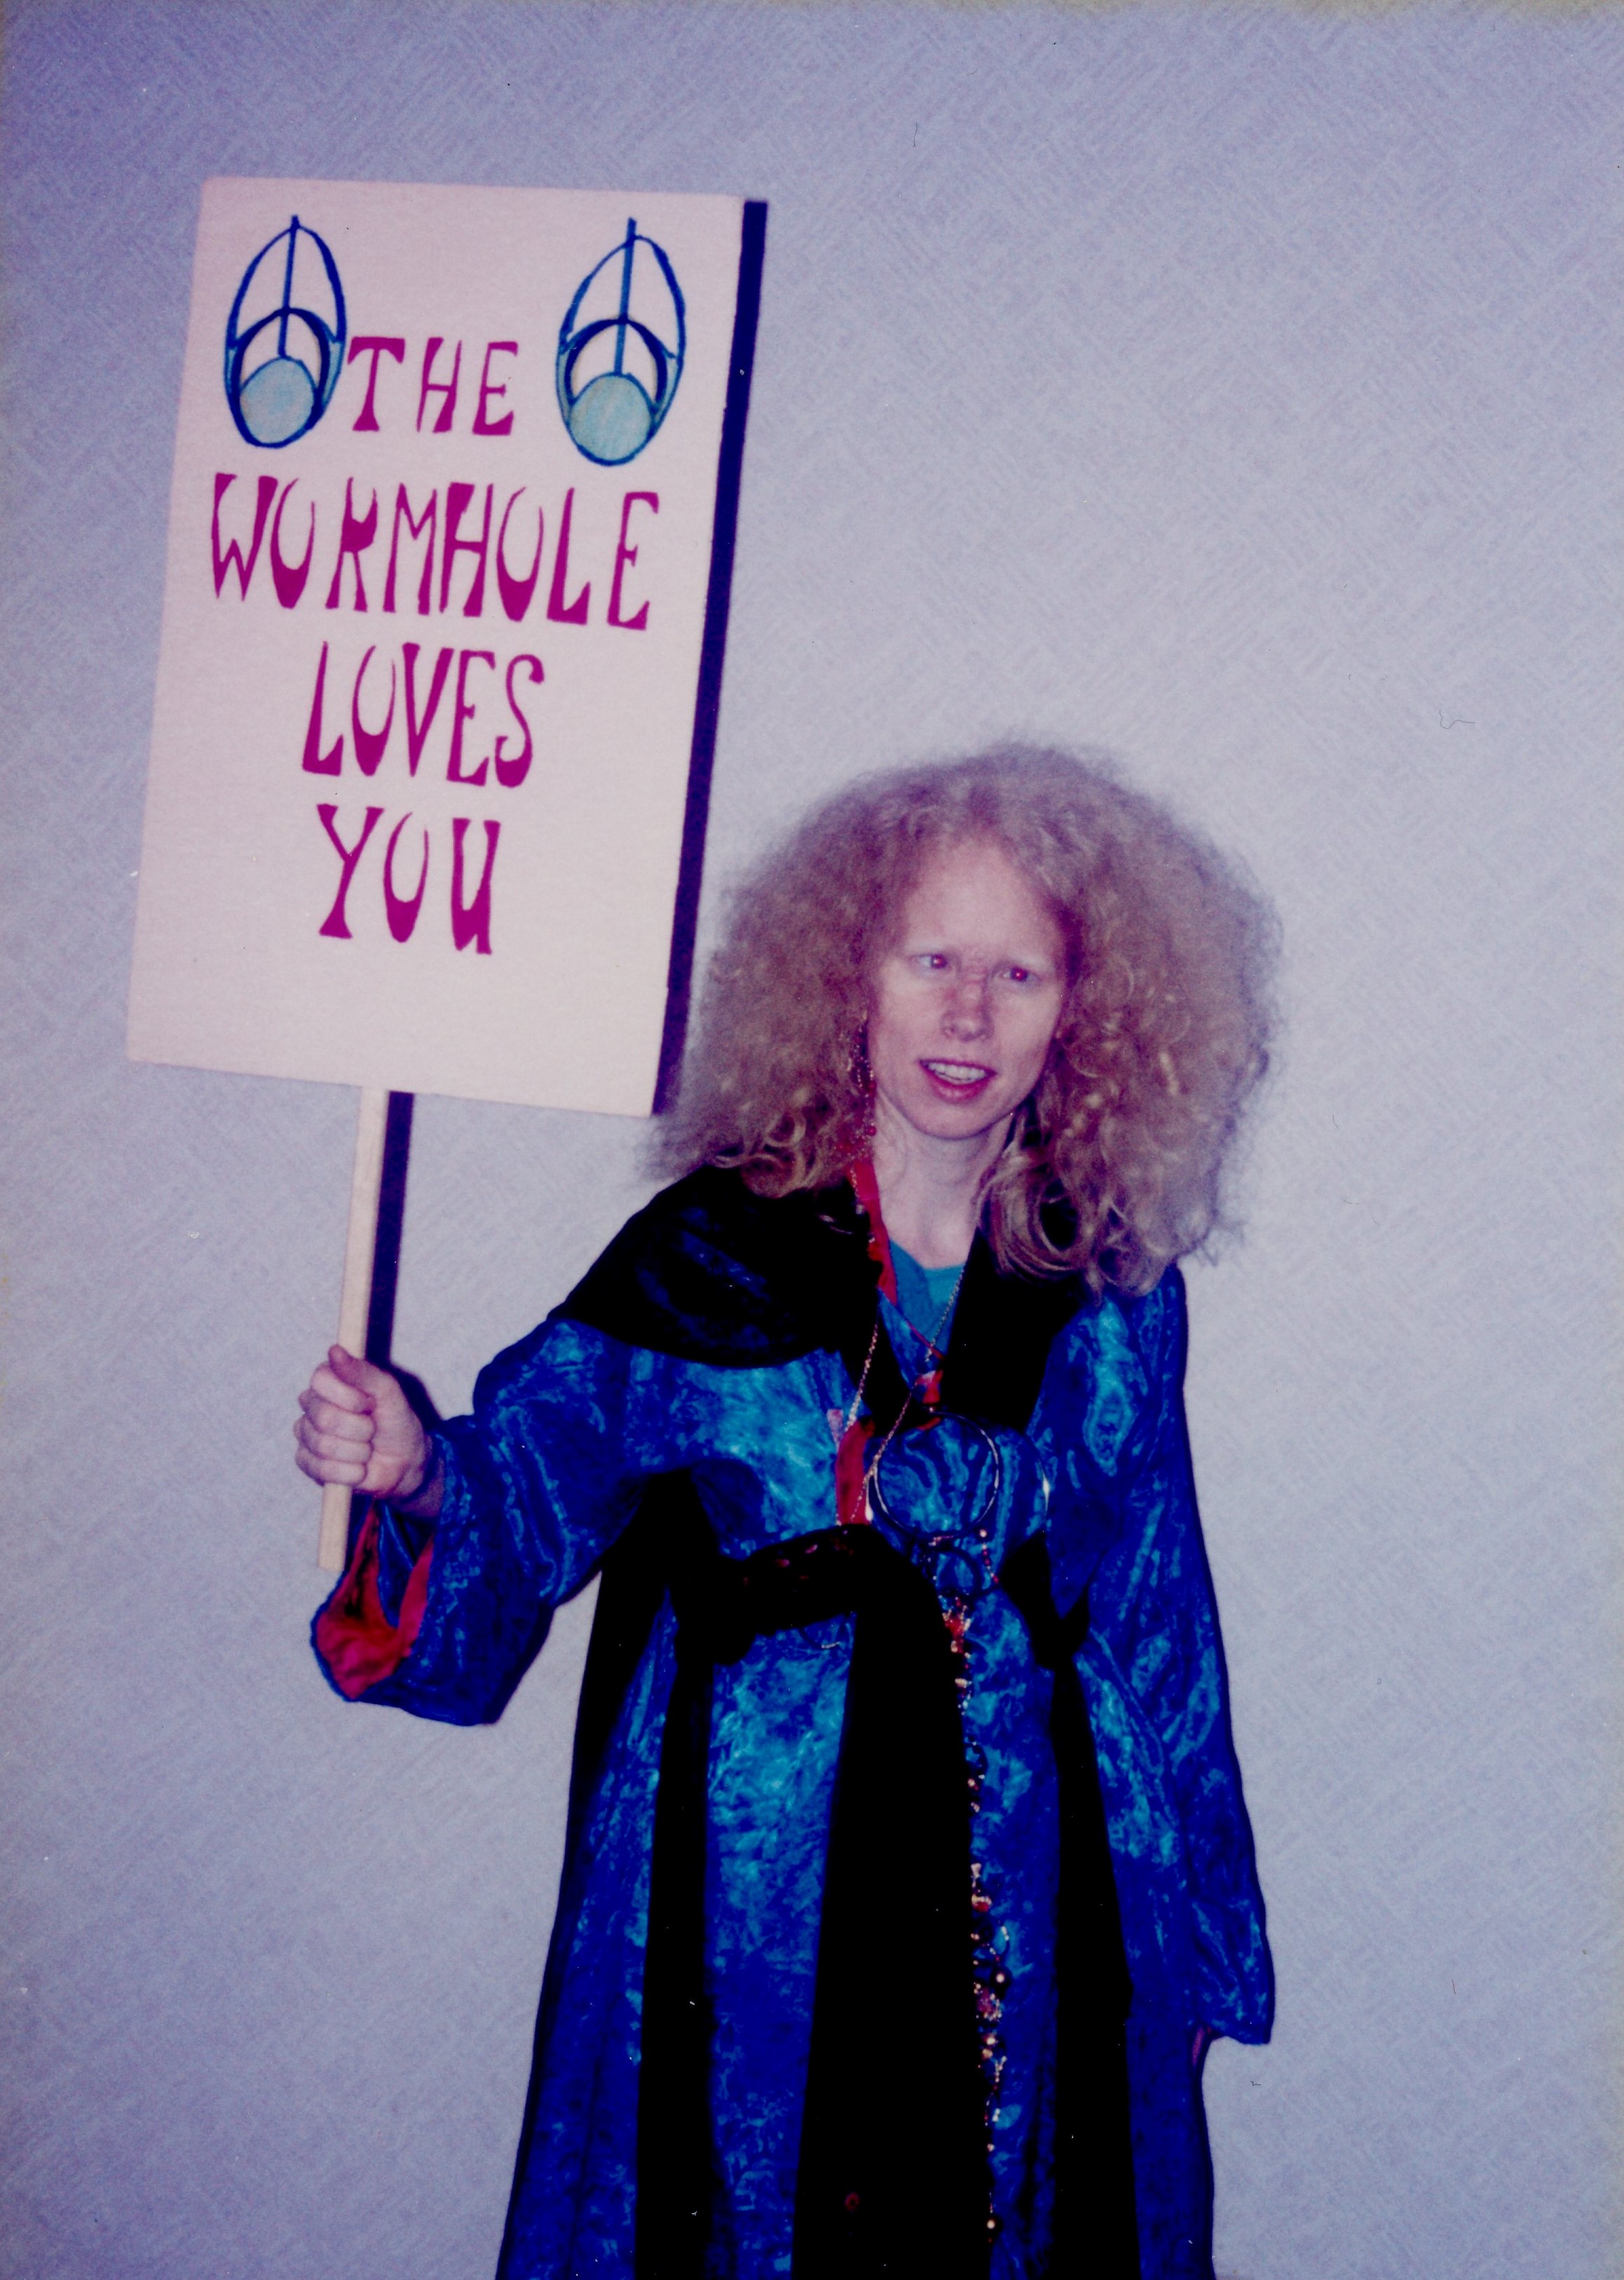 THE
WORMHOLE
LOVES
YOU